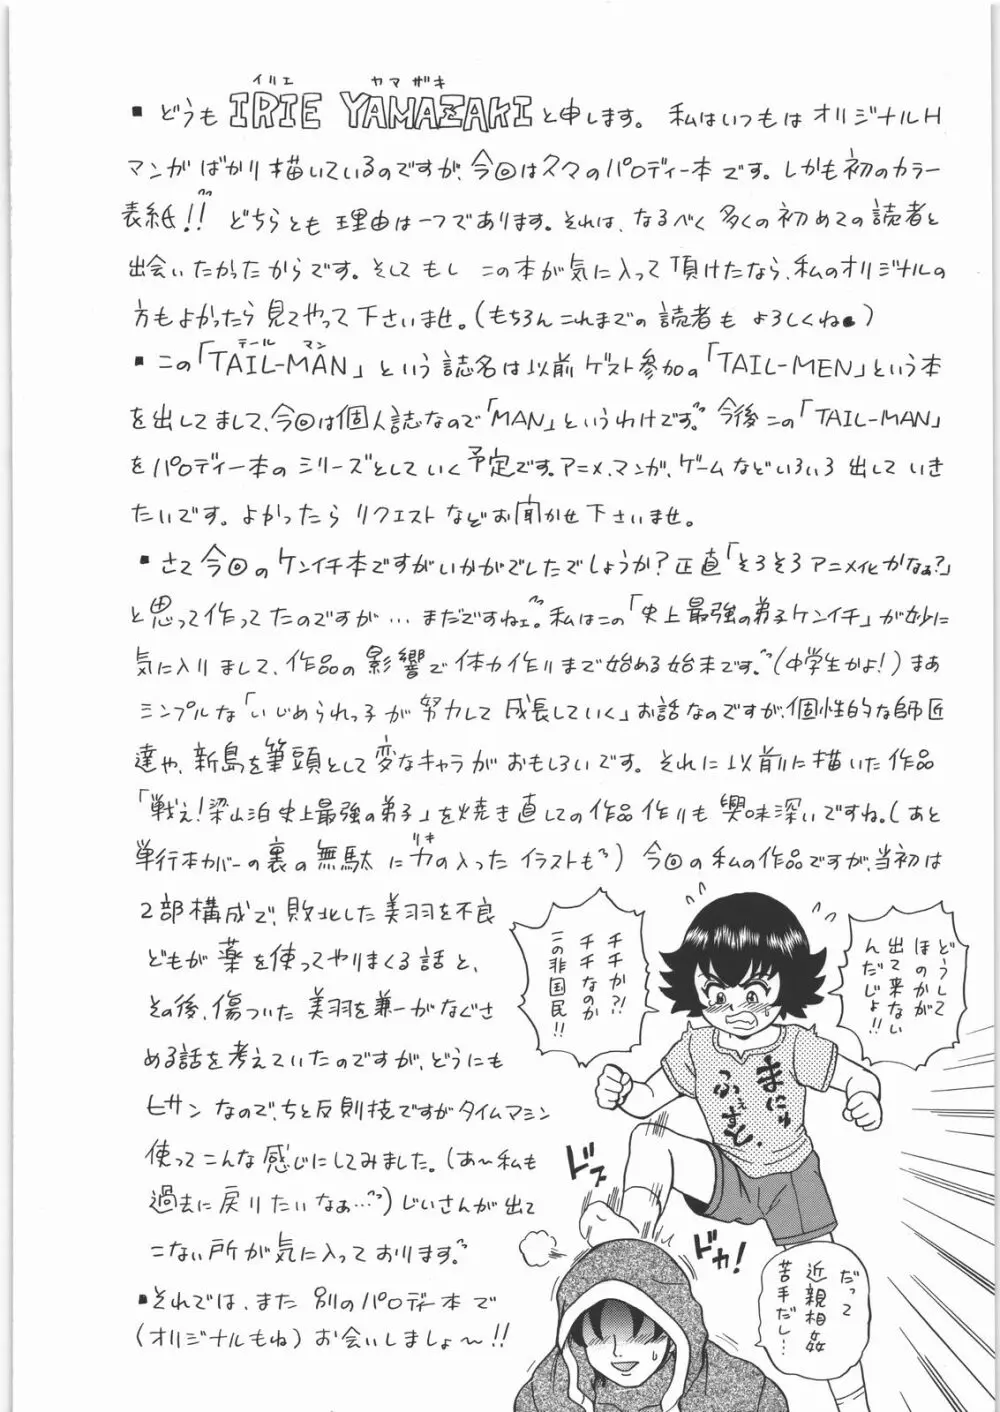 イリエ ヤマザキ
▪どうも IRIE YAMAZAKIと申します。私はいつもはオリジナルH
マンガばかり描いているのですが、今回は久々のパロディー本です。しかも初のカラー
表紙!! どちらとも理由は一つであります。それは、なるべく多くの初めての読者と
出会いたかったからです。そしてもしこの本が気に入って頂けたなら、私のオリジナルの
方もよかったら見てやって下さいませ。(もちろんこれまでの読者もよろしくね)
テール マン
▪この「TAIL-MAN」という誌名は以前ゲスト参加の「TAIL-MEN」という本
を出してまして、今回は個人誌なので「MAN」というわけです。今後この「TAIL-MAN」
をパロディー本のシリーズとしていく予定です。アニメ、マンガ、ゲームなどいろいろ出していき
たいです。よかったらリクエストなどお聞かせ下さいませ。
▪さて今回のケンイチ本ですがいかがでしたでしょうか?正直「そろそろアニメ化かなぁ?」
と思って作ってたのですが…まだですねェ。私はこの「史上最強の弟子ケンイチ」が妙に
気に入りまして、作品の影響で体力作りまで始める始末です。(中学生かよ!)まあ
シンプルな「いじめられっ子が努力して成長していく」お話なのですが、個性的な師匠
達や、新島を筆頭として変なキャラがおもしろいです。それに以前に描いた作品
「戦え!梁山泊史上最強の弟子」を焼き直しての作品作りも興味深いですね。(あと
単行本カバーの裏の無駄に力の入ったイラストも)今回の私の作品ですが、当初は
リキ
2部構成で、敗北した美羽を不良
どもが薬を使ってやりまくる話と、
その後、傷ついた美羽を兼一がなぐさ
める話を考えていたのですが、どうにも
ヒサンなので、ちと反則技ですがタイムマシン
使ってこんな感じにしてみました。(あ〜私も
過去に戻りたいなぁ…)じいさんが出て
こない所が気に入っております。
▪それでは、また別のパロディー本で
(オリジナルもね)お会いしましょ〜!!
どうして
ほのかが
出て来ない
んだじょ!!
チチか?!
チチなのか
この非国民!!
まにゅ
ふぇすと、
ドズ
ドカ!
だって
近親相姦
苦手だし…